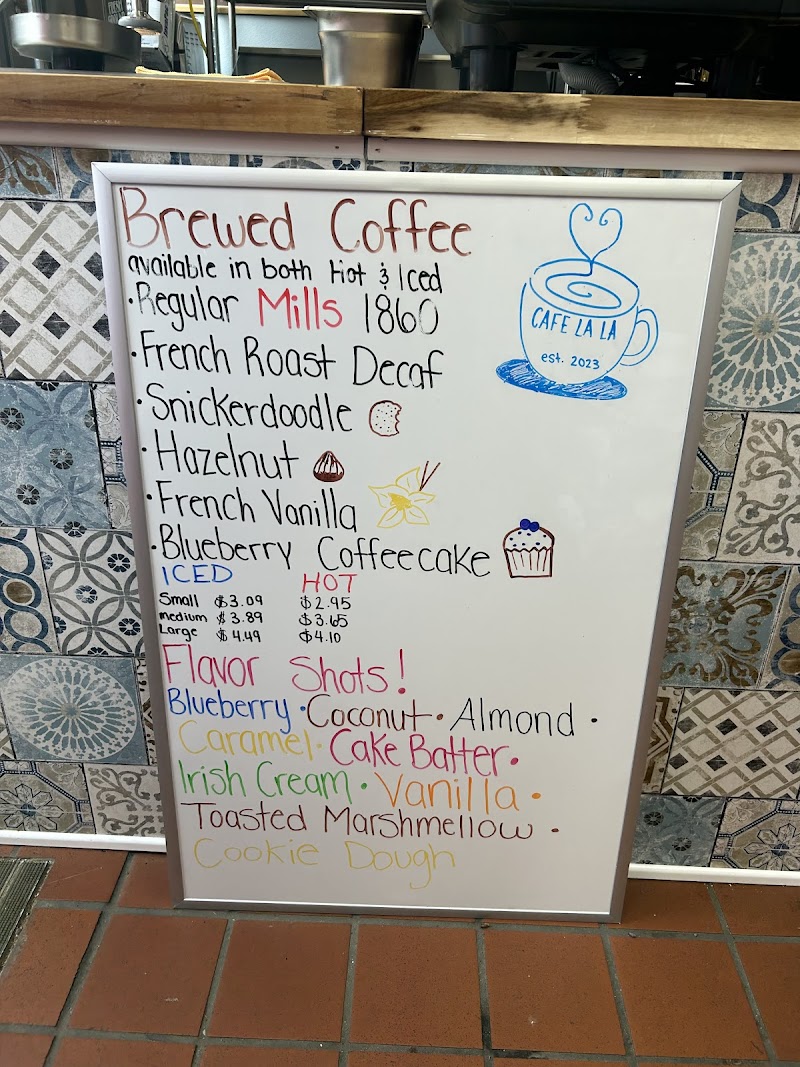 Brewed Coffee
available in both Hot & Iced
•Regular Mills 1860
•French Roast Decaf
•Snickerdoodle
•Hazelnut
•French Vanilla
•Blueberry Coffeecake
CAFE LA LA
est. 2023
ICED HOT
Small $3.09 $2.95
medium $3.89 $3.65
Large $4.49 $4.10
Flavor Shots!
Blueberry • Coconut • Almond •
Caramel • Cake Batter •
Irish Cream • Vanilla •
Toasted Marshmellow •
Cookie Dough